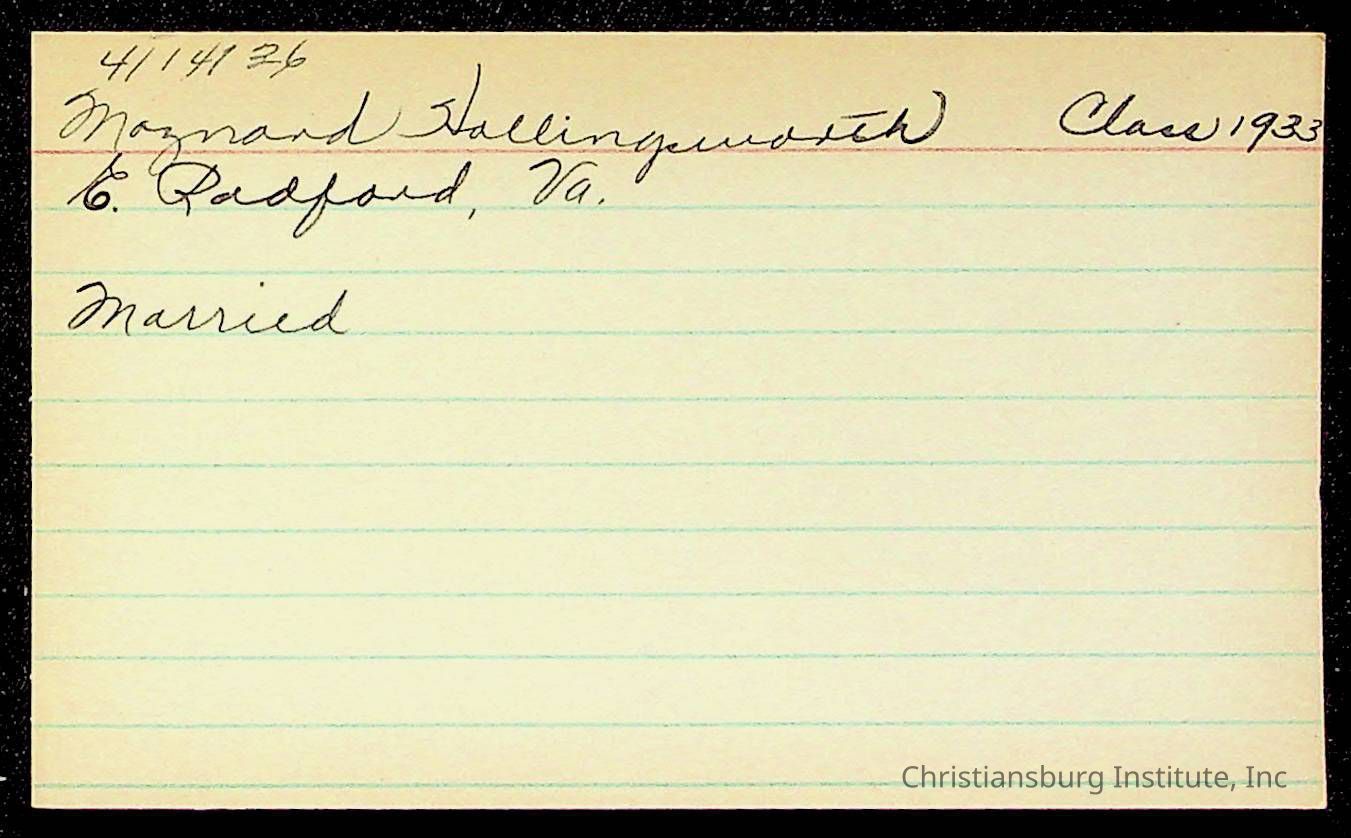 4/14/36
Maynard Hollingsworth Class 1933
E. Radford, Va.
Married
Christiansburg Institute, Inc